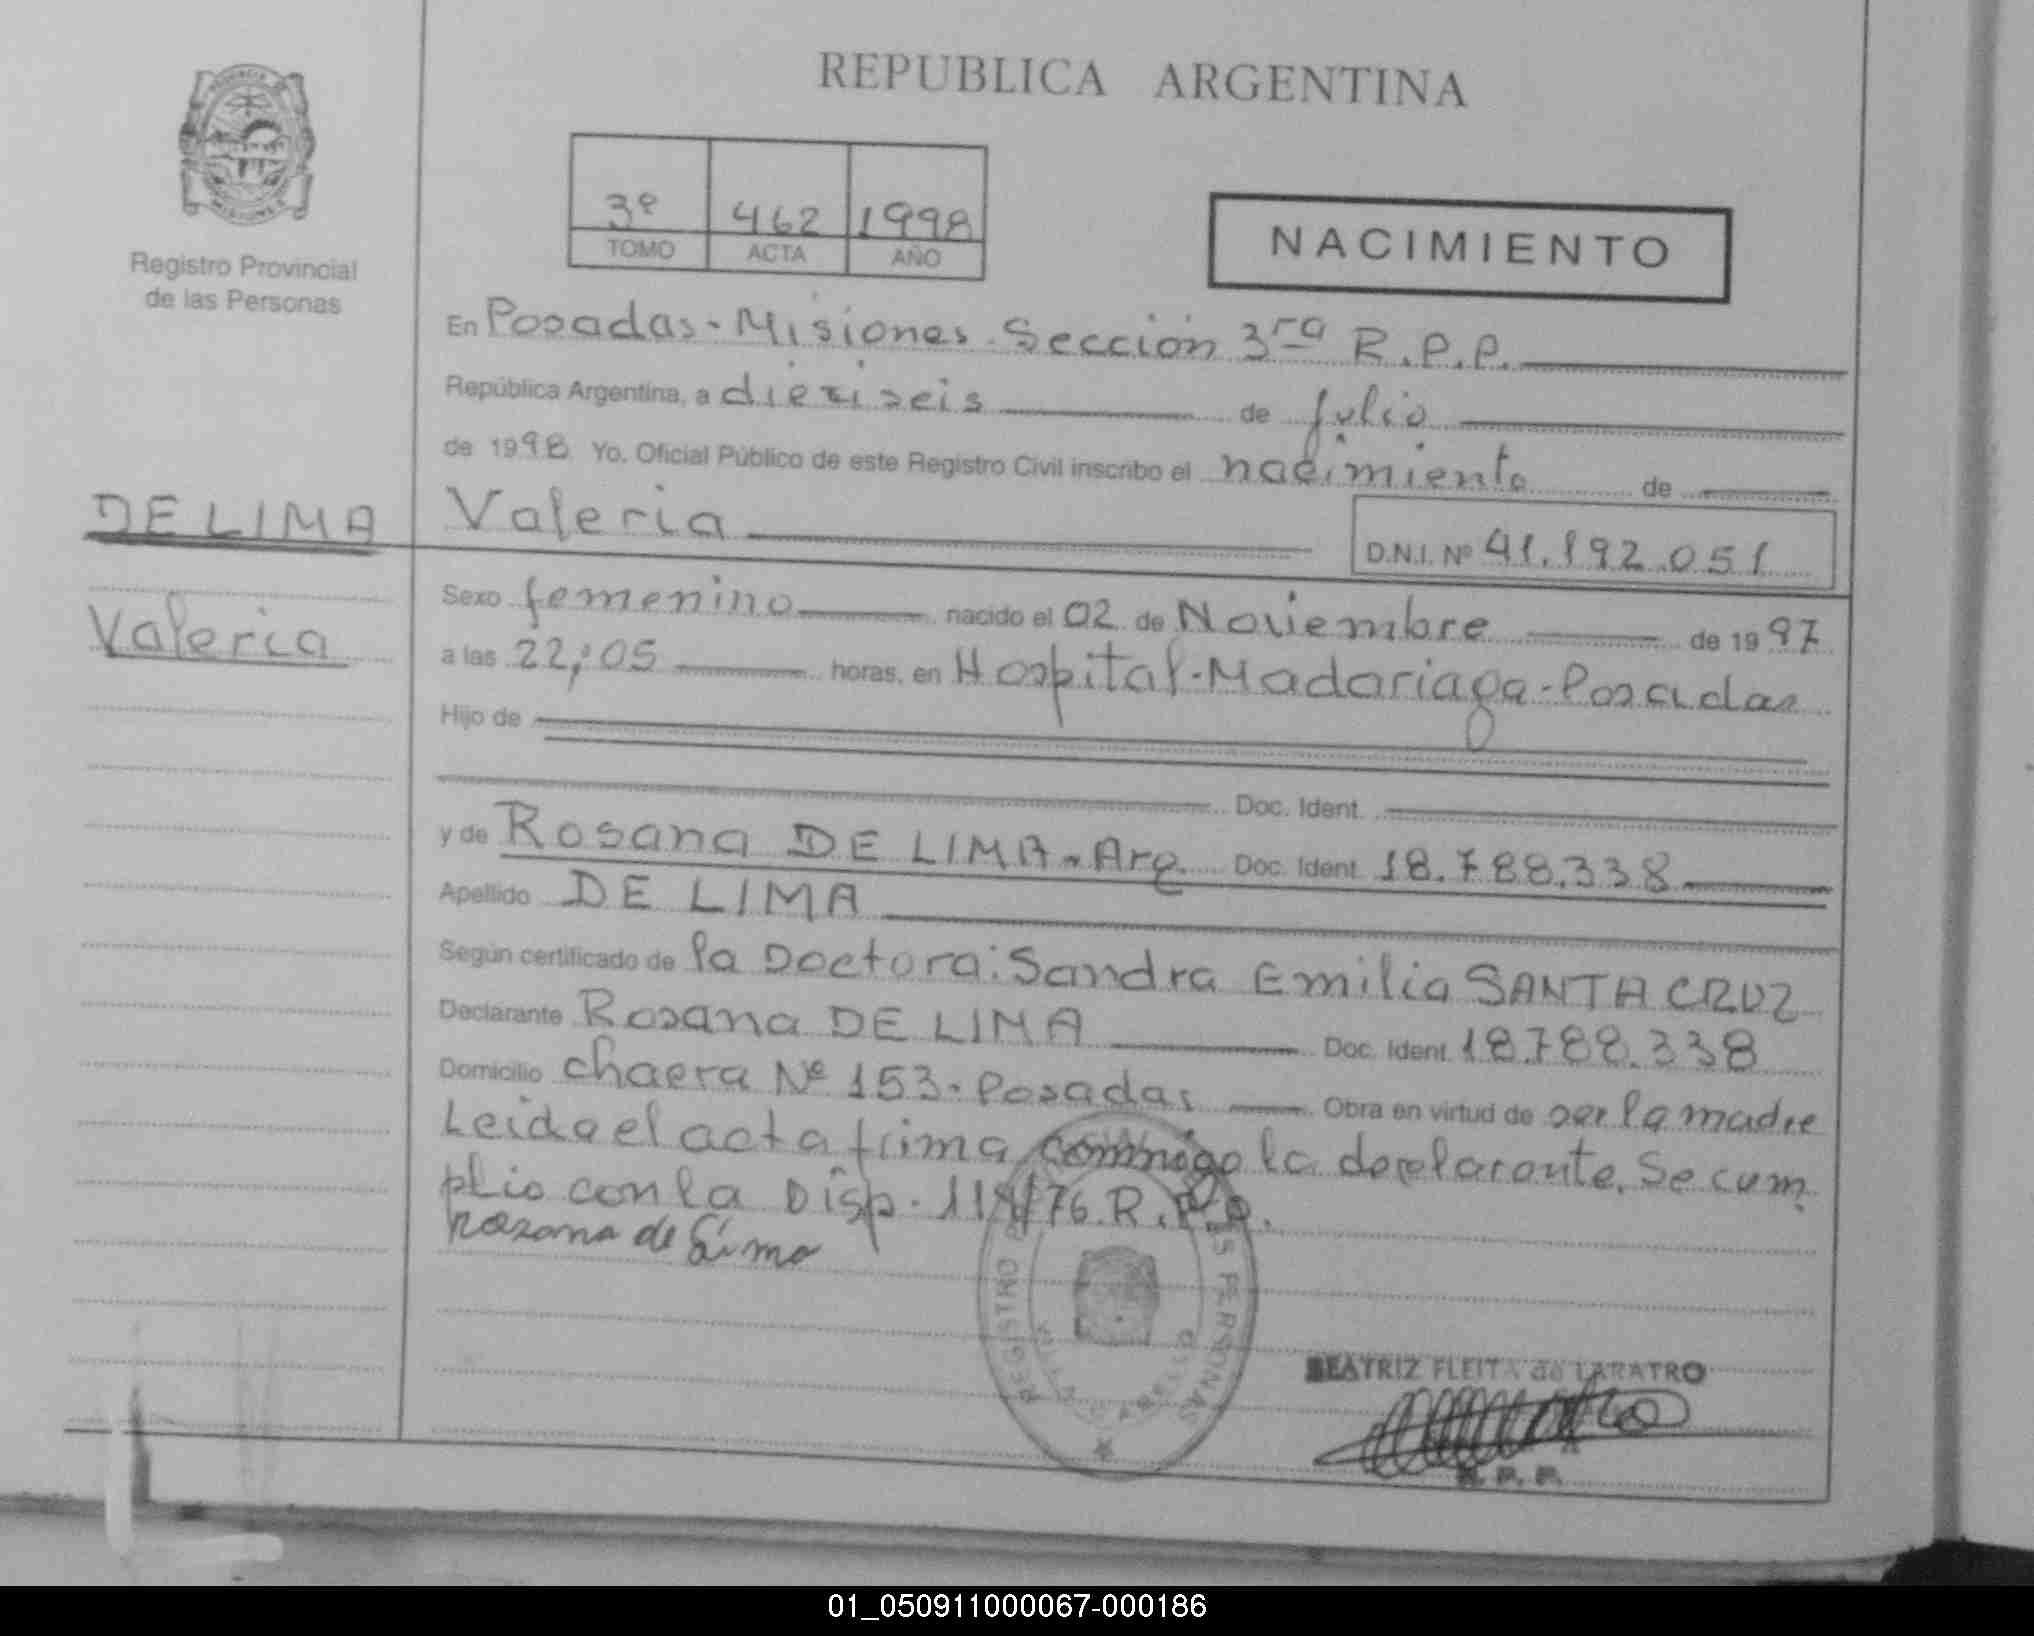 REPUBLICA ARGENTINA
3º 462 1998
TOMO ACTA AÑO
NACIMIENTO
Registro Provincial
de las Personas
En Posadas - Misiones - Sección 3ra R.P.P.
República Argentina, a dieziseis de julio
de 1998 Yo, Oficial Público de este Registro Civil inscribo el nacimiento de
DE LIMA Valeria D.N.I. Nº 41.192.051
Valeria
Sexo femenino nacido el 02 de Noviembre de 1997
a las 22:05 horas, en Hospital - Madariaga - Posadas
Hijo de
Doc. Ident.
y de Rosana DE LIMA - Arg. Doc. Ident. 18.788.338
Apellido DE LIMA
Según certificado de la Doctora: Sandra Emilia SANTA CRUZ
Declarante Rosana DE LIMA Doc. Ident. 18.788.338
Domicilio chacra Nº 153 - Posadas Obra en virtud de ser la madre
Leida el acta firma conmigo la declarante. Se cum
plio con la Disp. /76. R.P.P.
Rosana de Lima
REGISTRO PERSONAS
BEATRIZ FLEITA de LARATRO
R. P. P.
01_050911000067-000186